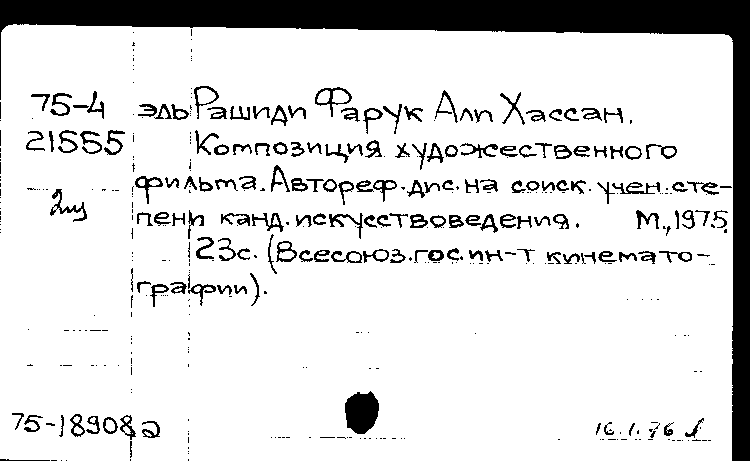 75-4 эль Рашиди Фарук Али Хассан.
21555 Композиция художественного
фильма. Автореф. дис. на соиск. учен. сте-
2из пени канд. искусствоведения. М., 1975.
23с. (Всесоюз. гос. ин-т кинемато-
графии).
75-18908а 16.1.76